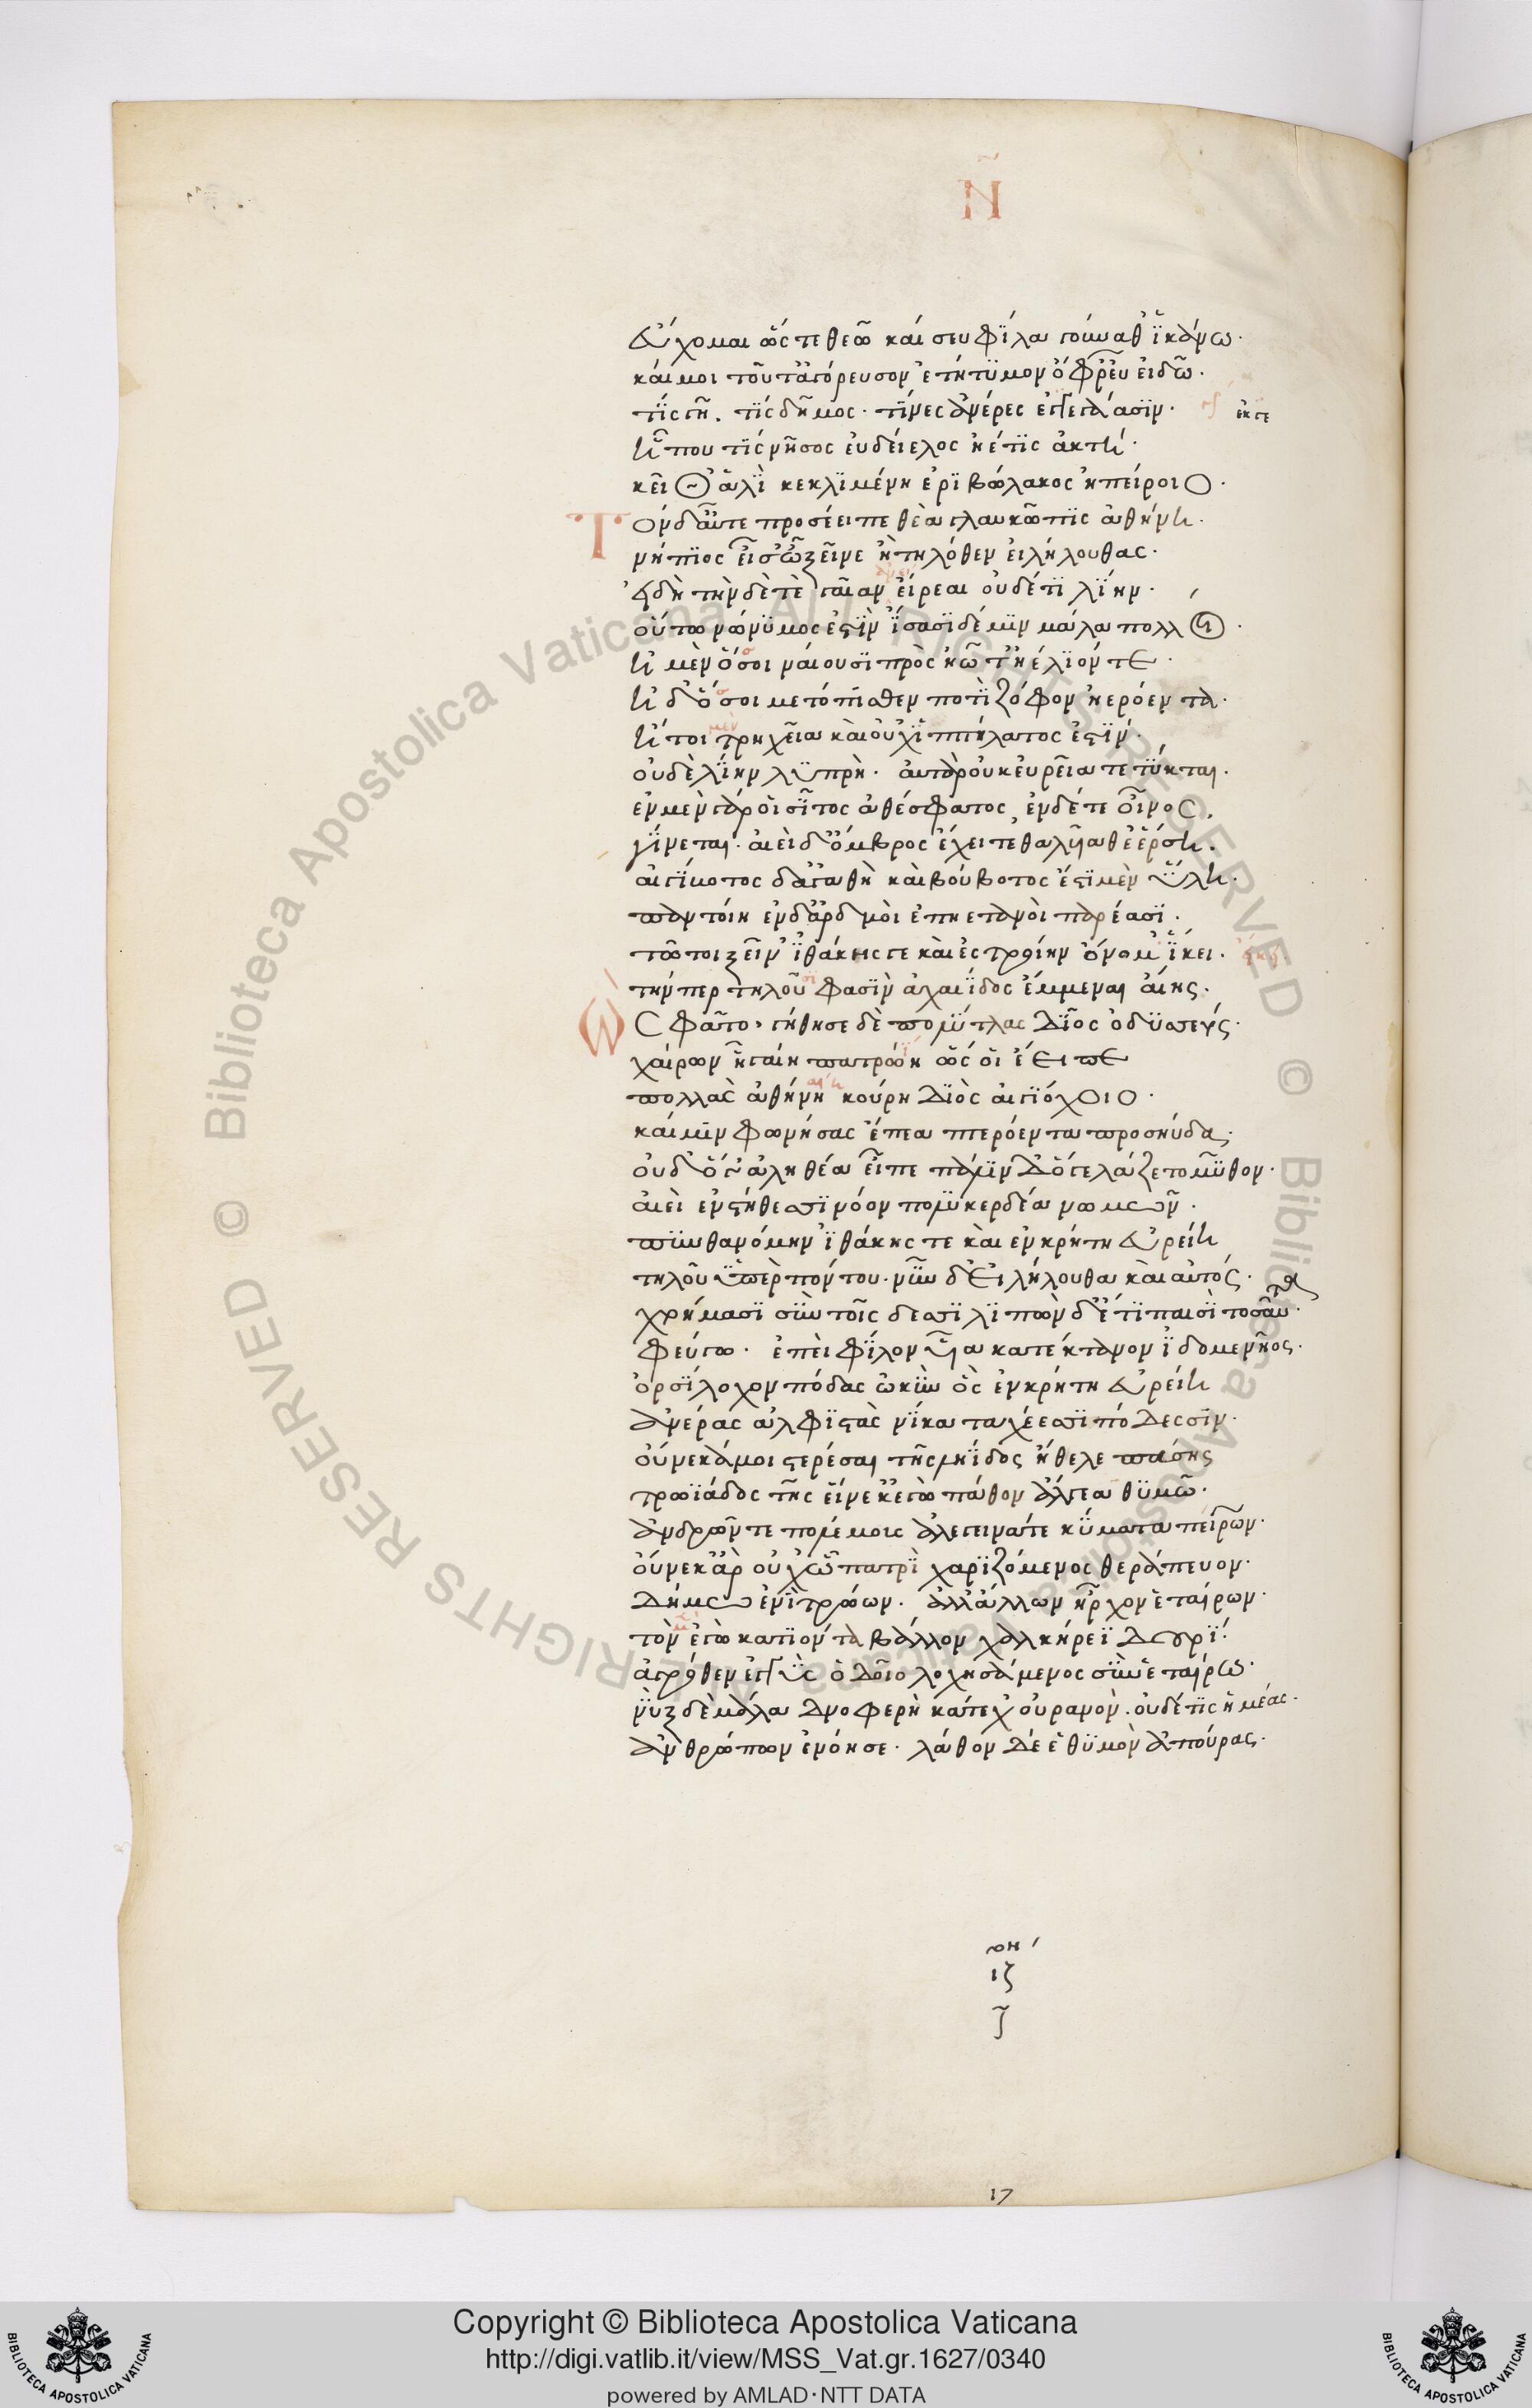 Ν
εὔχομαι ὥς τε θεῶ καί σευ φίλα γούναθ' ἱκάνω.
καί μοι τοῦτ' ἀγόρευσον ἐτήτυμον ὄφρ' εὖ εἰδῶ.
τίς γῆ. τίς δῆμος. τίνες ἀνέρες ἐγγεγάασιν. ἐκγε
ἦ που τίς νῆσος εὐδείελος ἠέ τις ἀκτή.
κεῖθ' ἁλὶ κεκλιμένη ἐριβώλακος ἠπείροιο.
Τὸν δ' αὖτε προσέειπε θεὰ γλαυκῶπις ἀθήνη.
νήπιος εἶς ὦ ξεῖνε ἢ τηλόθεν εἰλήλουθας.
εἰ δὴ τὴν δέ τε γαῖαν εἴρεαι οὐδέ τι λίην.
οὕτω νώνυμος ἐστὶν ἴσασι δέ μιν μάλα πολλοί.
ἠμὲν ὅσοι ναίουσι πρὸς ἠῶ τ' ἠέλιόν τε.
ἠδ' ὅσοι μετόπισθεν ποτὶ ζόφον ἠερόεντα.
ἤτοι μὲν τρηχεῖα καὶ οὐχ ἱππήλατος ἐστίν.
οὐδὲ λίην λυπρὴ. ἀτὰρ οὐκ εὐρεῖα τέτυκται.
ἐν μὲν γάρ οἱ σῖτος ἀθέσφατος, ἐν δέ τε οἶνος.
γίνεται. αἰεὶ δ' ὄμβρος ἔχει τεθαλυῖά θ' ἐέρση.
αἰγίβοτος δ' ἀγαθὴ καὶ βούβοτος ἔστι μὲν ὕλη.
παντοίη ἐν δ' ἀρδμοὶ ἐπηετανοὶ παρέασι.
τῶ τοι ξεῖν' ἰθάκης γε καὶ ἐς τροίην ὄνομ' ἵκει.
τήν περ τηλοῦ φασὶν ἀχαιίδος ἔμμεναι αἴης.
Ὣς φάτο. γήθησε δὲ πολύτλας δῖος ὀδυσσεύς.
χαίρων ἧ γαίη πατρώη ὥς οἱ ἔειπε
παλλὰς ἀθήνη κούρη διὸς αἰγιόχοιο.
καί μιν φωνήσας ἔπεα πτερόεντα προσηύδα.
οὐδ' ὅγ' ἀληθέα εἶπε πάλιν δ' ὅγε λάζετο μῦθον.
αἰεὶ ἐν στήθεσσι νόον πολυκερδέα νωμῶν.
πυνθανόμην ἰθάκης γε καὶ ἐν κρήτη εὐρείη
τηλοῦ ὑπὲρ πόντου. νῦν δ' εἰλήλουθα καὶ αὐτός.
χρήμασι σὺν τοῖς δεσσι λιπὼν δ' ἔτι παισὶ τοσαῦτα.
φεύγω. ἐπεὶ φίλον υἷα κατέκτανον ἰδομενῆος.
ὀρσίλοχον πόδας ὠκὺν ὃς ἐν κρήτη εὐρείη
ἀνέρας ἀλφιστὰς νίκα ταχέεσσι πόδεσσιν.
οὕνεκά μοι στερέσαι τῆς ληίδος ἤθελε πάσης
τρωιάδος τῆς εἵνεκ' ἐγὼ πάθον ἄλγεα θυμῶ.
ἀνδρῶν τε πολέμους ἀλεγεινά τε κύματα πείρων.
οὕνεκ' ἄρ' οὐχ ᾧ πατρὶ χαριζόμενος θεράπευον.
δήμω ἐνὶ τρώων. ἀλλ' ἄλλων ἦρχον ἑταίρων.
τὸν μὲν ἐγὼ κατιόντα βάλλον χαλκήρεϊ δουρί.
ἀγρόθεν ἐγγὺς ὁδοῖο λοχησάμενος σὺν ἑταίρω.
νὺξ δὲ μάλα δνοφερὴ κάτεχ' οὐρανόν. οὐδέ τις ἡμέας.
ἀνθρώπων ἐνόησε. λάθον δέ ἑ θυμὸν ἀπούρας.
ιζ
17
Copyright © Biblioteca Apostolica Vaticana
http://digi.vatlib.it/view/MSS_Vat.gr.1627/0340
powered by AMLAD·NTT DATA